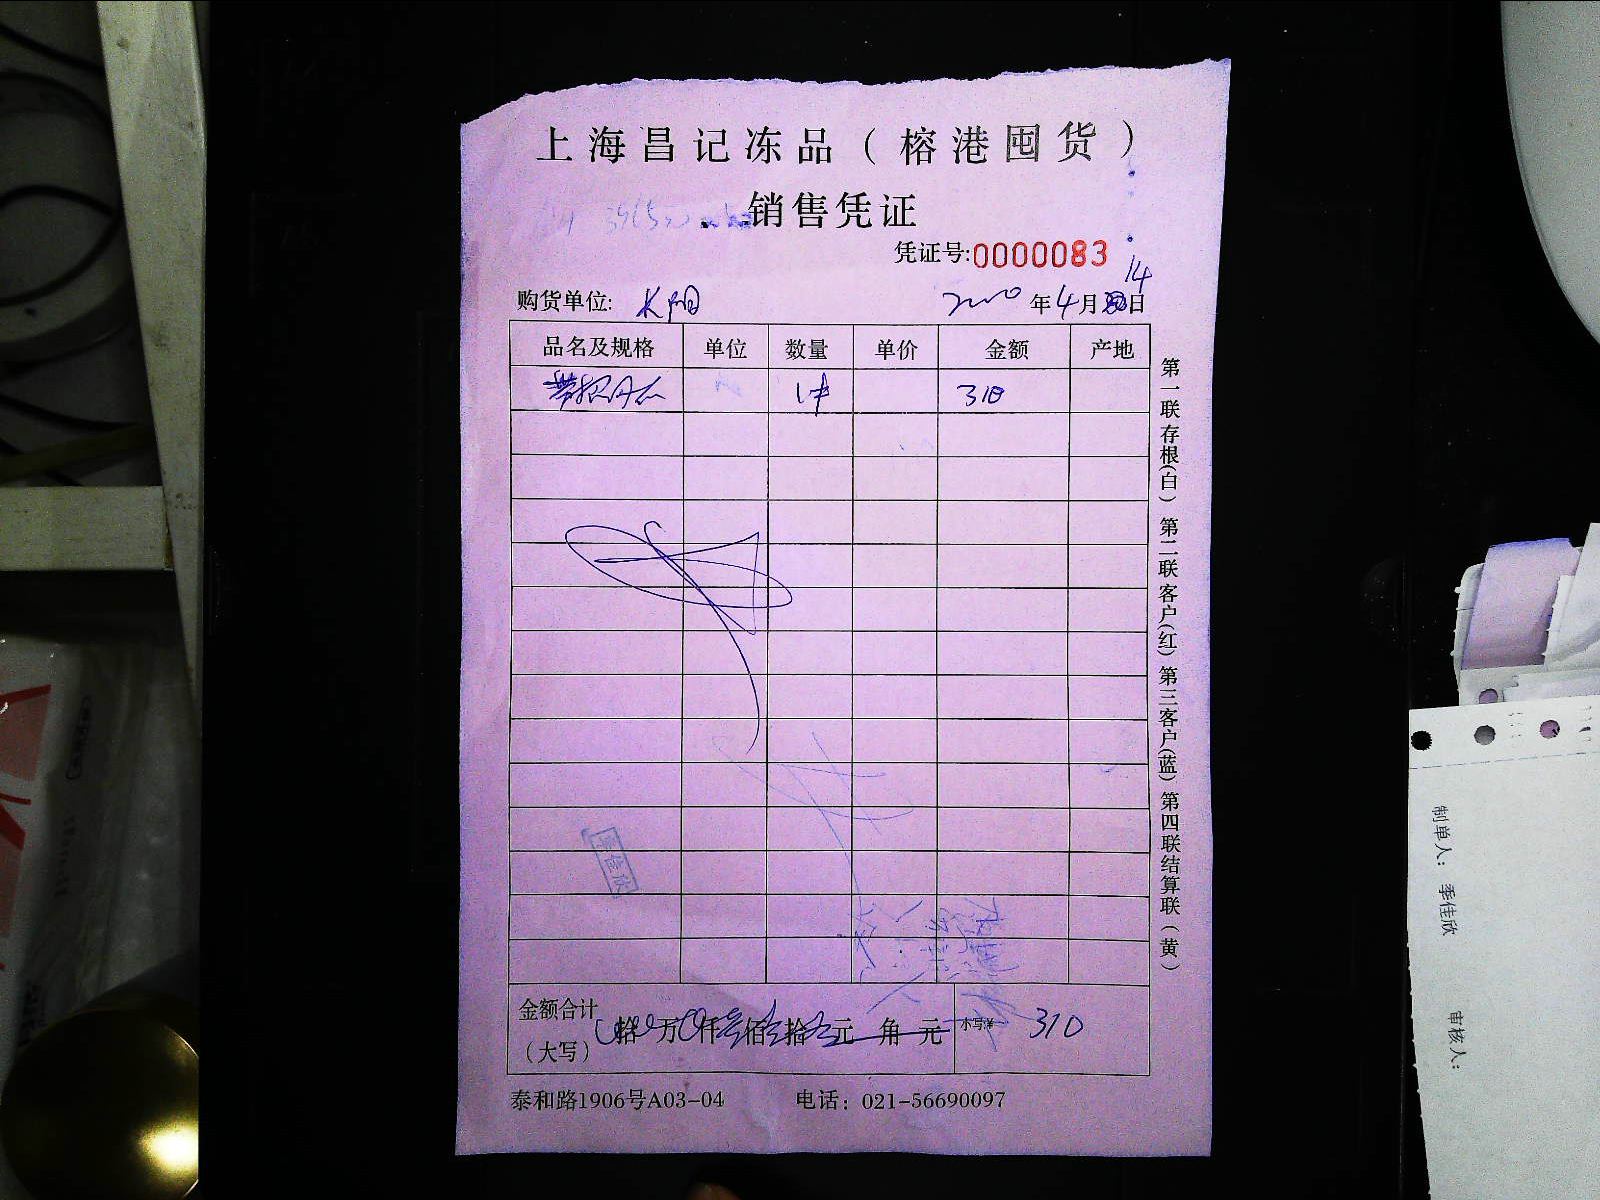 上海昌记冻品（榕港囤货）
销售凭证
凭证号:0000083
14
购货单位: 长阳 年4月日
品名及规格 单位 数量 单价 金额 产地
1件 310
季佳欣
金额合计（大写） 拾 万 仟 佰 拾 元 角 元 小写 310
泰和路1906号A03-04 电话：021-56690097
第一联存根(白) 第二联客户(红) 第三客户(蓝) 第四联结算联(黄)
制单人：季佳欣 审核人：